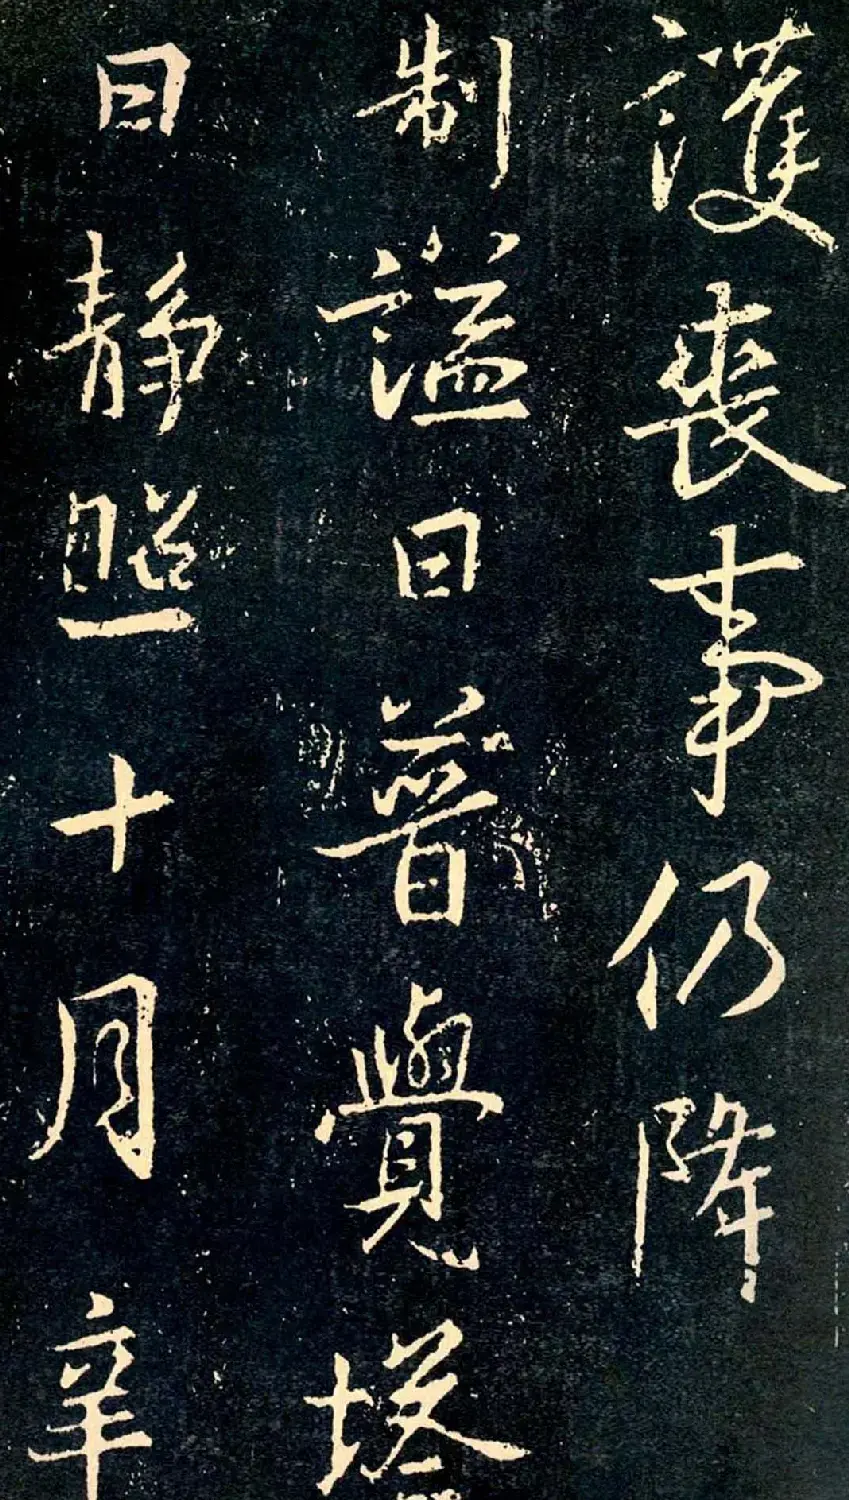 護喪事仍降
制謚曰普覺塔
曰静照十月辛